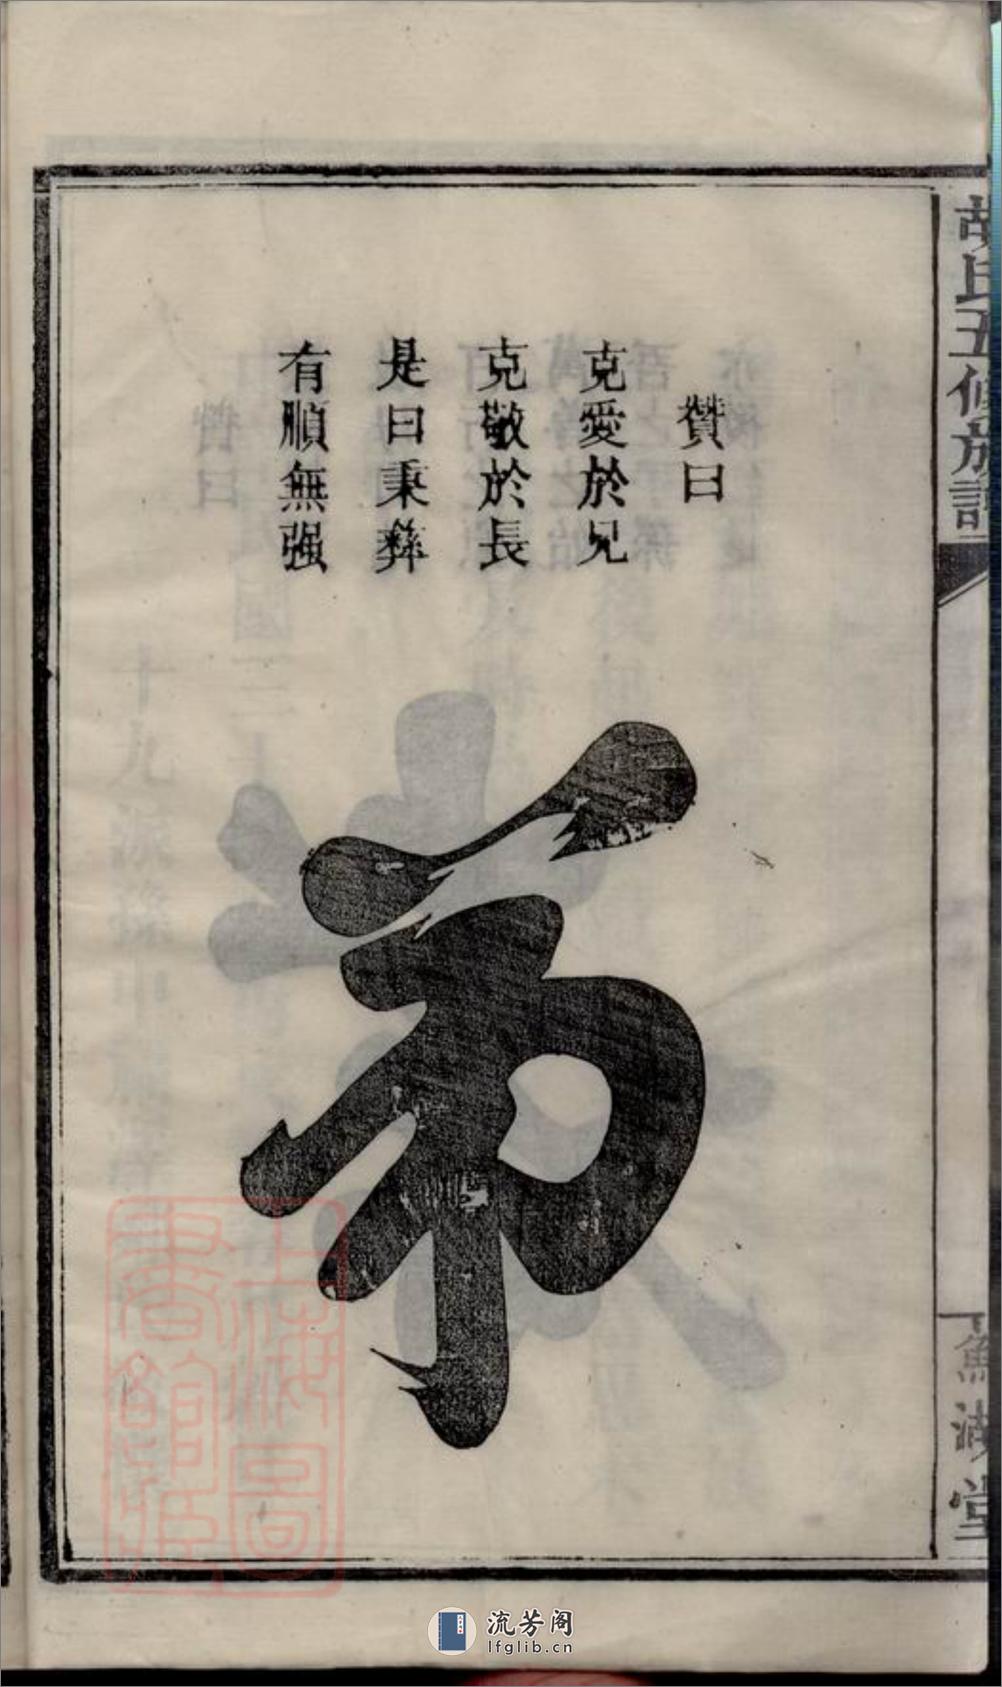 胡氏五修族譜
贊曰
克愛於兄
克敬於長
是曰秉彝
有順無强
弟
魚湖堂
上海圖書館藏
流芳阁
lfglib.cn